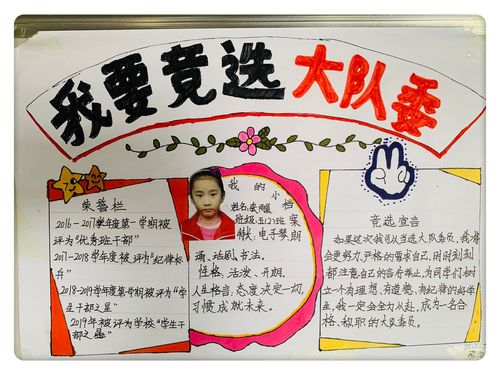 我要竞选大队委
荣誉栏
2016-2017学年度第一学期被
评为"优秀班干部"
2017-2018学年度被评为"纪律标
兵"
2018-2019学年度第一学期被评为"学
生干部之星"
2019年被评为学校"学生干
部之星"
我的小档案
姓名:
班级:五(12)班
特长:电子琴、朗
诵、话剧、书法。
性格:活泼、开朗。
人生格言:态度决定一切,
习惯成就未来。
竞选宣言
如果这次我可以当选大队委员,我将
会更努力、严格的要求自己,时时刻刻
都注意自己的言行举止,为同学们树
立一个有理想、有道德、为纪律的好学
生,我一定会全力以赴,成为一名合
格、称职的大队委员。